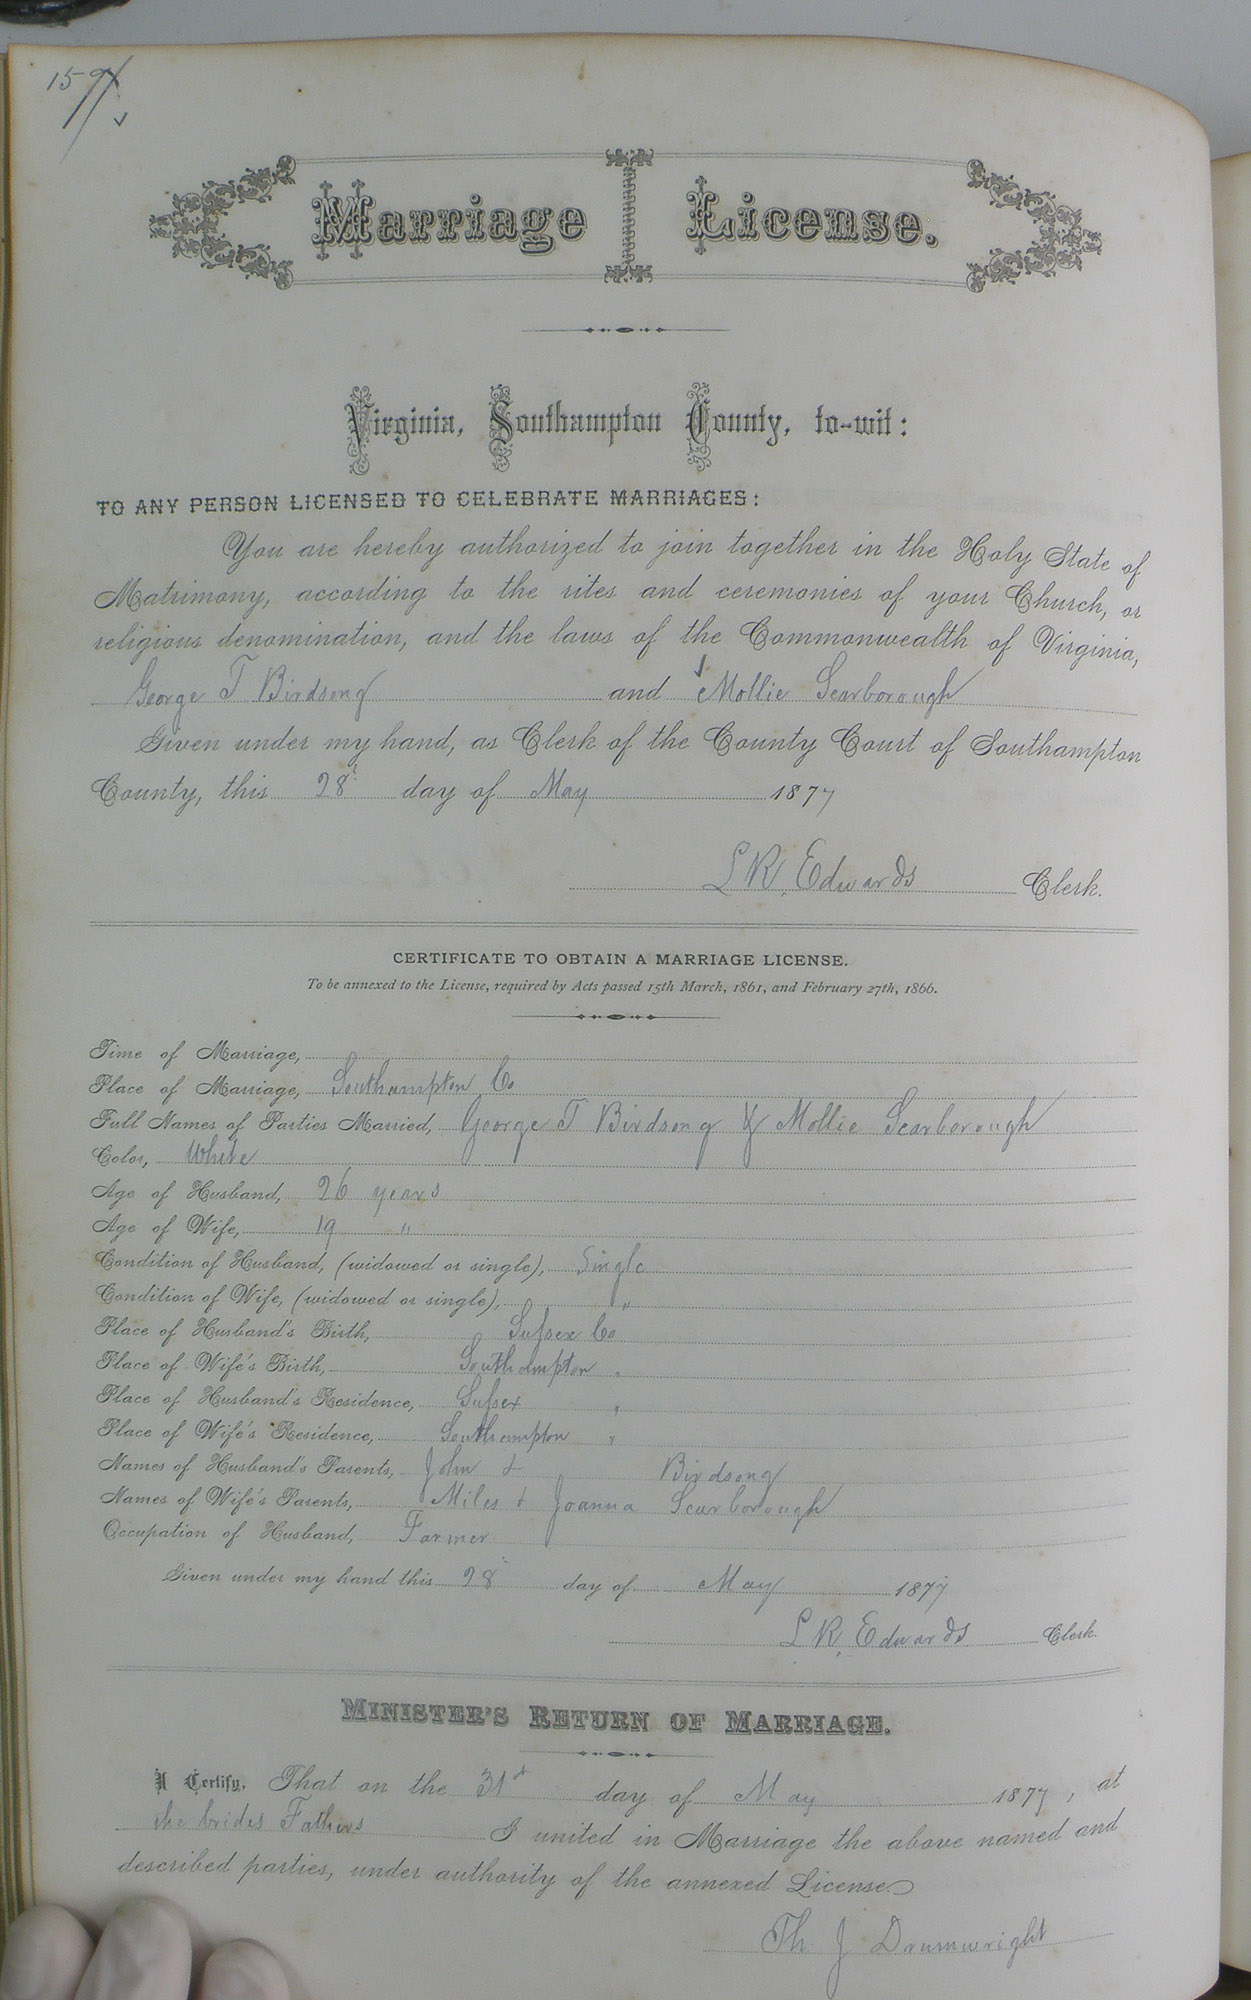 Marriage License.
Virginia, Southampton County, to-wit:
TO ANY PERSON LICENSED TO CELEBRATE MARRIAGES:
You are hereby authorized to join together in the Holy State of
Matrimony, according to the rites and ceremonies of your Church, or
religious denomination, and the laws of the Commonwealth of Virginia,
George T Birdsong and Mollie Scarborough
Given under my hand, as Clerk of the County Court of Southampton
County, this 28 day of May 1877
L R Edwards Clerk.
CERTIFICATE TO OBTAIN A MARRIAGE LICENSE.
To be annexed to the License, required by Acts passed 15th March, 1861, and February 27th, 1866.
Time of Marriage,
Place of Marriage, Southampton Co
Full Names of Parties Married, George T Birdsong & Mollie Scarborough
Color, White
Age of Husband, 26 years
Age of Wife, 19 "
Condition of Husband, (widowed or single), Single
Condition of Wife, (widowed or single), "
Place of Husband's Birth, Sussex Co
Place of Wife's Birth, Southampton "
Place of Husband's Residence, Sussex "
Place of Wife's Residence, Southampton "
Names of Husband's Parents, John & Birdsong
Names of Wife's Parents, Miles & Joanna Scarborough
Occupation of Husband, Farmer
Given under my hand this 28 day of May 1877
L R Edwards Clerk.
MINISTER'S RETURN OF MARRIAGE.
I Certify, That on the 31st day of May 1877, at
the brides Fathers I united in Marriage the above named and
described parties, under authority of the annexed License.
Th J Drumwright